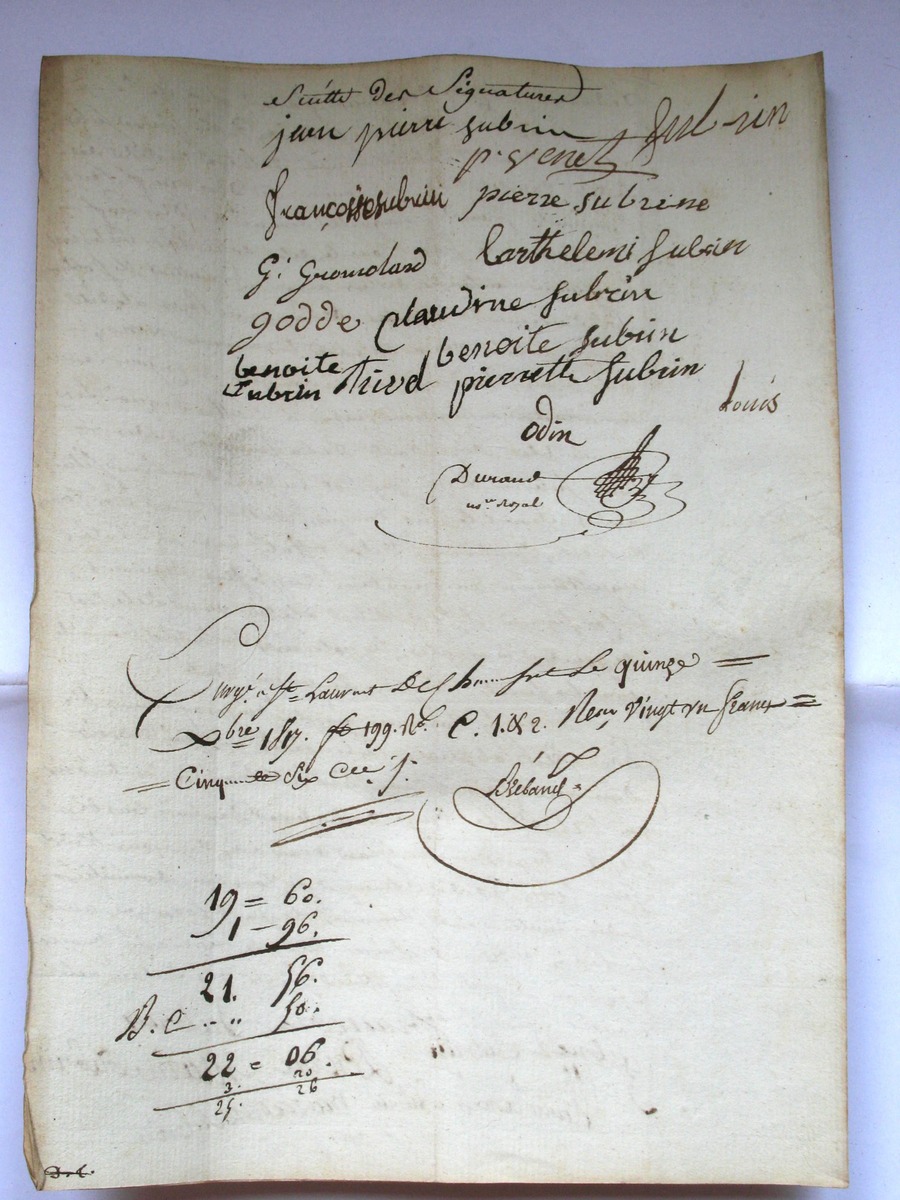 Suitte des Signatures
jean pierre subrin Sub-rin
p. venet
françoise subrin pierre subrine
G. Gromolard barthelemi subrin
godde claudine subrin
benoite subrin Tivel benoite subrin
pierrette subrin
Louis
odin
Durand
nre Royal
St Laurent De le quinze =
Xbre 1817. fo 199. Ro. C. 1. & 2. Reçu Vingt un francs =
= Cinquante Six Ces
19 = 60.
1 - 96.
21. 56.
B. C .. .. 50.
22 = 06.
3. 20
25. 26